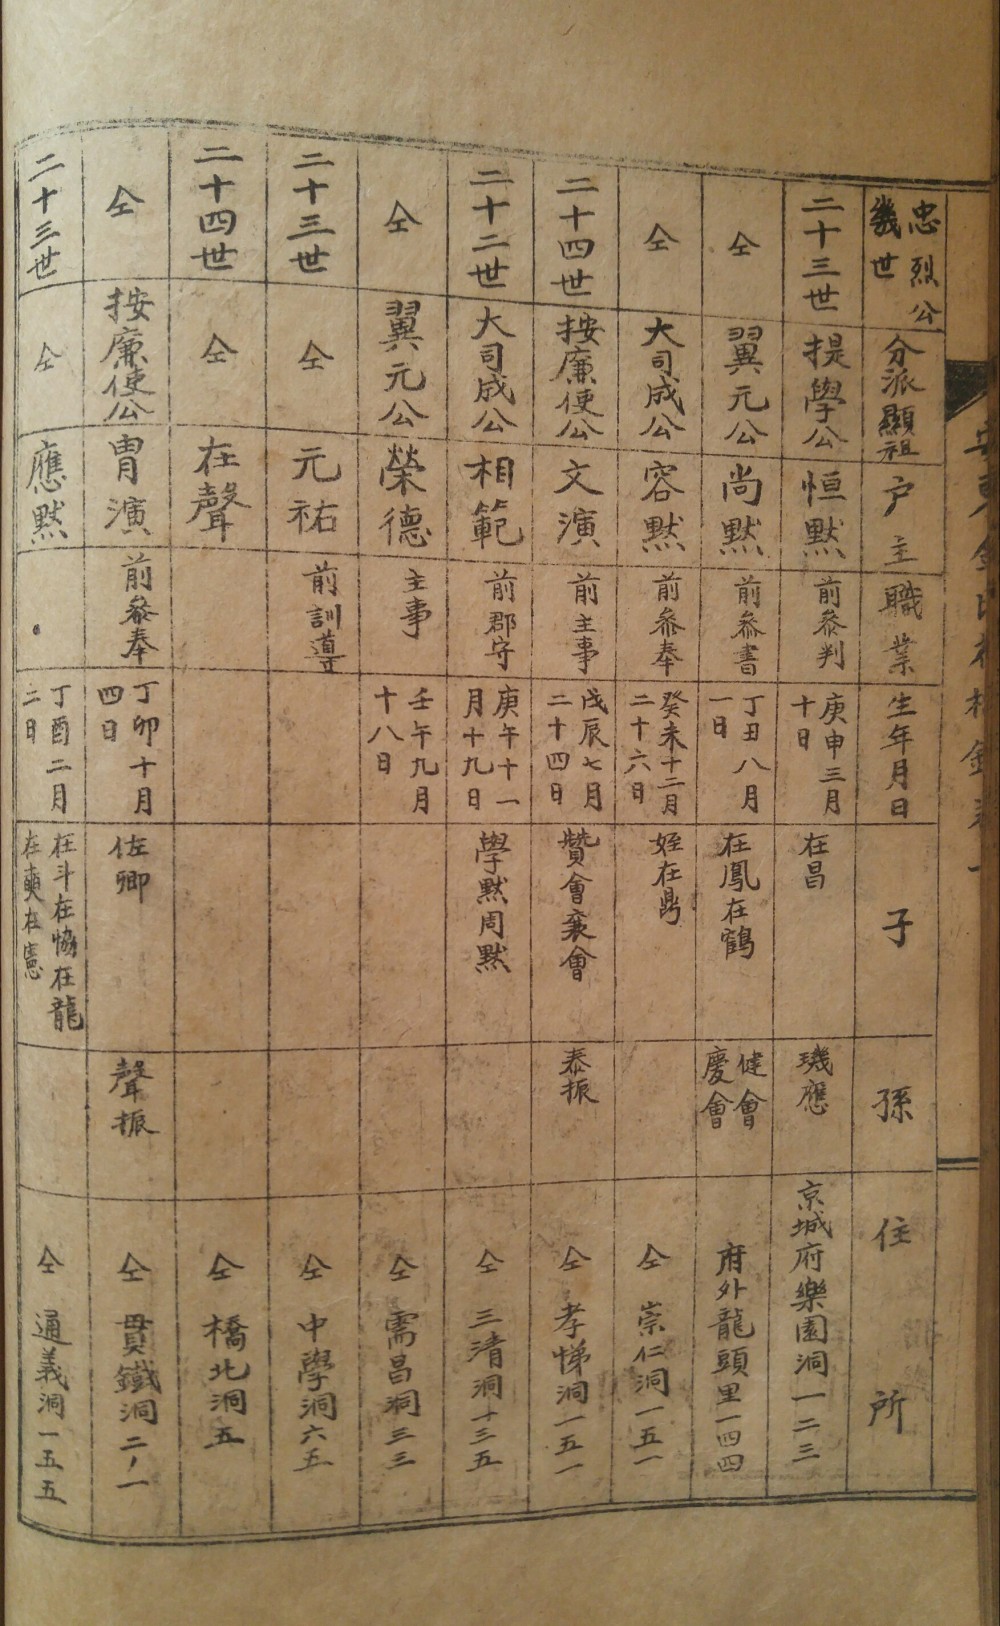 忠烈公
幾世
分派顯祖
戶主
職業
生年月日
子
孫
住所
二十三世
提學公
恒黙
前參判
庚申三月
十日
在昌
璣應
京城府樂園洞一二三
仝
翼元公
尚黙
前參書
丁丑八月
一日
在鳳在鶴
健會
慶會
府外龍頭里一四四
仝
大司成公
容黙
前參奉
癸未十二月
二十六日
姪在鼎
仝崇仁洞一五一
二十四世
按廉使公
文演
前主事
戊辰七月
二十四日
贊會袞會
泰振
仝孝悌洞一五一
二十二世
大司成公
相範
前郡守
庚午十一
月十九日
學黙周黙
仝三清洞十三五
仝
翼元公
榮德
主事
壬午九月
十八日
仝需昌洞三三
二十三世
仝
元祐
前訓導
仝中學洞六五
二十四世
仝
在聲
仝橋北洞五
仝
按廉使公
胄演
前參奉
丁卯十月
四日
佐卿
聲振
仝貫鐵洞二ノ一
二十三世
仝
應黙
丁酉二月
二日
在斗在協在龍
在奭在憲
仝通義洞一五五